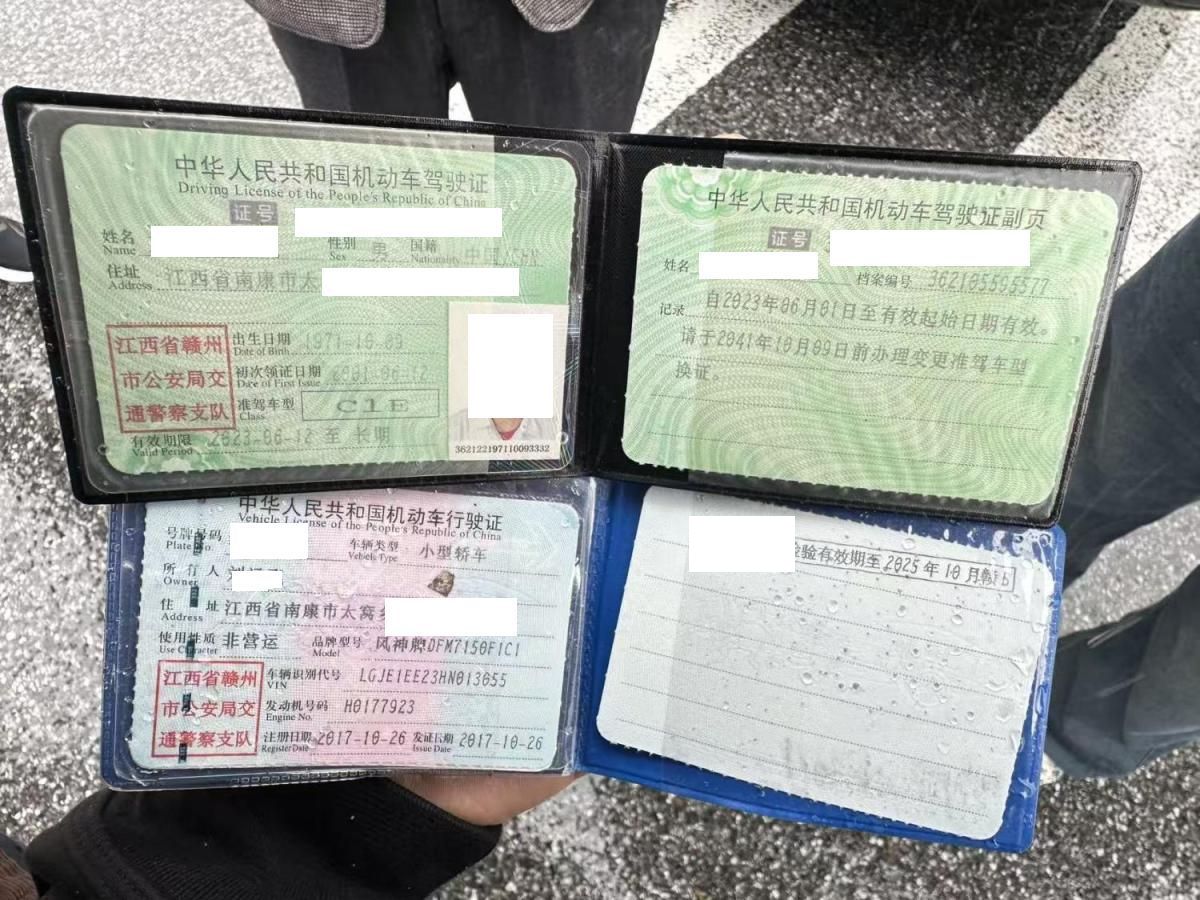 中华人民共和国机动车驾驶证
Driving License of the People's Republic of China
证号
姓名 性别 男 国籍 中国/CHN
Name Sex Nationality
住址 江西省南康市太
Address
江西省赣州
市公安局交
通警察支队
出生日期 1971-10-09
Date of Birth
初次领证日期 2001-06-12
Date of First Issue
准驾车型 C1E
Class
有效期限 2023-06-12 至 长期
Valid Period
362122197110093332
中华人民共和国机动车驾驶证副页
证号
姓名 档案编号
Name
记录 自2023年06月01日至有效起始日期有效。
请于2041年10月09日前办理变更准驾车型
换证。
中华人民共和国机动车行驶证
Vehicle License of the People's Republic of China
号牌号码 车辆类型 小型轿车
Plate No. Vehicle Type
所有人
Owner
住址 江西省南康市太窝
Address
使用性质 非营运 品牌型号 风神牌DFM7150F1C1
Use Character Model
江西省赣州
市公安局交
通警察支队
车辆识别代号 LGJE1EE23HN013655
VIN
发动机号码 H0177923
Engine No.
注册日期 2017-10-26 发证日期 2017-10-26
Register Date Issue Date
验有效期至 2025 年 10 月